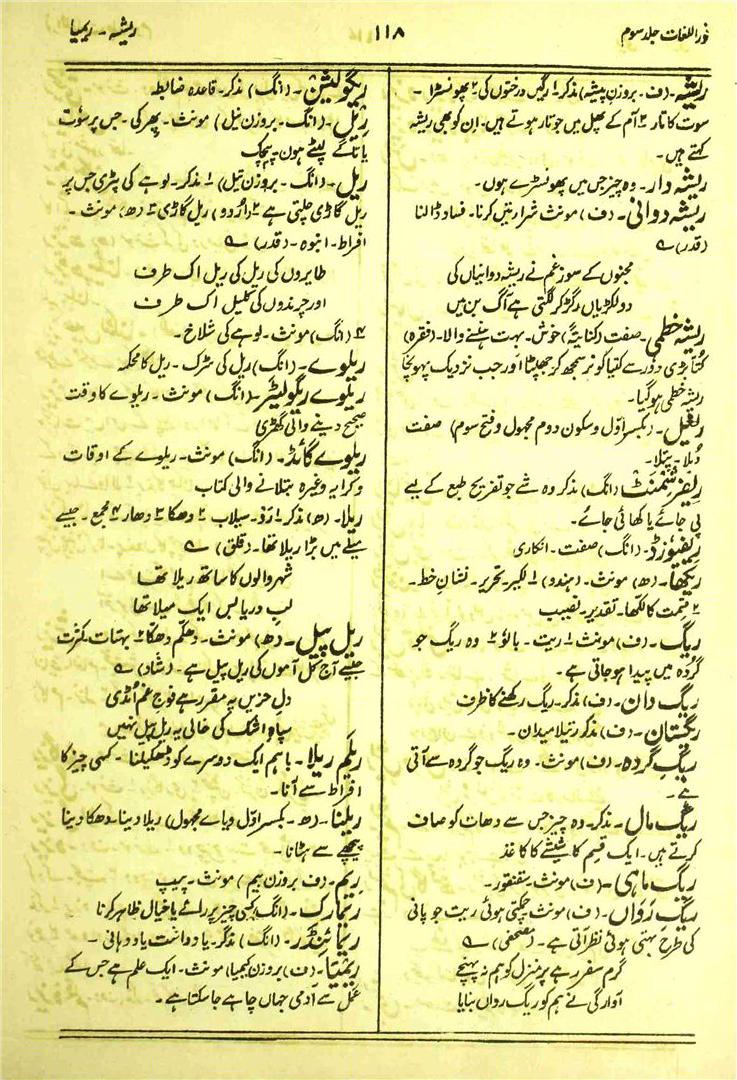 نور اللغات جلد سوم
۱۱۸
ریشہ ۔ ریمیا
ریشہ۔ (ف۔ بروزن پیشہ) مذکر۔ ۱ رگیں درختوں کی ۲ پھونسڑا۔
سوت کا تار ۳ آم کے پھل میں جو تار ہوتے ہیں۔ ان کو بھی ریشہ
کہتے ہیں۔
ریشہ دار۔ وہ چیز جس میں پھونسڑے ہوں۔
ریشہ دوانی۔ (ف) مونث شرارتیں کرنا۔ فساد ڈالنا
(قدر) ؎
مجنوں کے سوز غم نے ریشہ دوانیاں کی
دو لکڑیاں رگڑ کر لگتی ہے آگ بن میں
ریشہ خطمی۔ صفت (کنایۃً) خوش۔ بہت ہنسنے والا۔ (فقرہ)
کتا بڑی دور سے کتیا کو نر سمجھ کر جھپٹا اور جب نزدیک پہونچا
ریشہ خطمی ہو گیا۔
(بکسر اول و سکون دوم مجہول و فتح سوم) صفت
دبلا۔ پتلا۔
ریفرشمنٹ (انگ) مذکر وہ شے جو تفریح طبع کے لیے
پی جائے یا کھائی جائے۔
ریفیوزڈ۔ (انگ) صفت۔ انکاری
ریکھا۔ (ھ) مونث۔ (ہندو) ۱ لکیر۔ تحریر۔ نشان خط۔
۲ قسمت کا لکھا۔ تقدیر۔ نصیب
ریگ۔ (ف) مونث ۱ ریت۔ بالو ۲ وہ ریگ جو
گردہ میں پیدا ہو جاتی ہے۔
ریگ دان۔ (ف) مذکر۔ ریگ رکھنے کا ظرف
ریگستان۔ (ف) مذکر رتیلا میدان۔
ریگ گردہ۔ (ف) مونث۔ وہ ریگ جو گردہ سے آتی
ہے۔
ریگ مال۔ مذکر۔ وہ چیز جس سے دھات کو صاف
کرتے ہیں۔ ایک قسم کا شیشے کا کاغذ
ریگ ماہی۔ (ف) مونث۔ سقنقور۔
ریگ رواں۔ (ف) مونث چمکتی ہوئی ریت جو پانی
کی طرح بہتی ہوئی نظر آتی ہے۔ (مصحفی) ؎
گرم سفر رہے پر منزل کو ہم نہ پہنچے
آوارگی نے ہم کو ریگ رواں بنایا
ریگولیشن۔ (انگ) مذکر۔ قاعدہ ضابطہ
ریل۔ (انگ۔ بروزن نیل) مونث۔ پھرکی۔ جس پر سوت
یا تاگے لپٹے ہوں۔ پیچک
ریل۔ (انگ۔ بروزن تیل) ۱ مذکر۔ لوہے کی پٹری جس پر
ریل گاڑی چلتی ہے ۲ (اردو) ریل گاڑی ۳ (ھ) مونث۔
افراط۔ انبوہ۔ (قدر) ؎
طایروں کی ریل کی ریل اک طرف
اور چرندوں کی کلیل اک طرف
۴ (انگ) مونث۔ لوہے کی سلاخ۔
ریلوے۔ (انگ) ریل کی سڑک۔ ریل کا محکمہ
ریلوے ریگولیٹر۔ (انگ) مونث۔ ریلوے کا وقت
صحیح دینے والی گھڑی
ریلوے گائڈ۔ (انگ) مونث۔ ریلوے کے اوقات
و کرایہ وغیرہ بتلانے والی کتاب
ریلا۔ (ھ) مذکر ۱ رَو۔ سیلاب ۲ دھکا ۳ دھار ۴ مجمع۔ جیسے
میلے میں بڑا ریلا تھا۔ (قلق) ؎
شہر والوں کا ساتھ ریلا تھا
لب دریا بس ایک میلا تھا
ریل پیل۔ (ھ) مونث۔ دھکم دھکا ۲ بہتات۔ کثرت
جیسے آج کل آموں کی ریل پیل ہے۔ (شاد) ؎
دل حزیں پہ مقرر ہے فوج غم اُنڈی
سپاہ اشک کی خالی یہ ریل پیل نہیں
ریلم ریلا۔ باہم ایک دوسرے کو ڈھکیلنا۔ کسی چیز کا
افراط سے آنا۔
ریلنا۔ (ھ۔ بکسر اول و یاے مجہول) ریلا دینا۔ دھکا دینا
پیچھے سے ہٹانا۔
ریم۔ (ف بروزن بیم) مونث۔ پیپ
ریمارک۔ (انگ) کسی چیز پر رائے یا خیال ظاہر کرنا
ریمائنڈر۔ (انگ) مذکر۔ یادداشت یاد دہانی۔
ریمیا۔ (ف) بروزن کیمیا) مونث۔ ایک علم ہے جس کے
عمل سے آدمی جہاں چاہے جا سکتا ہے۔